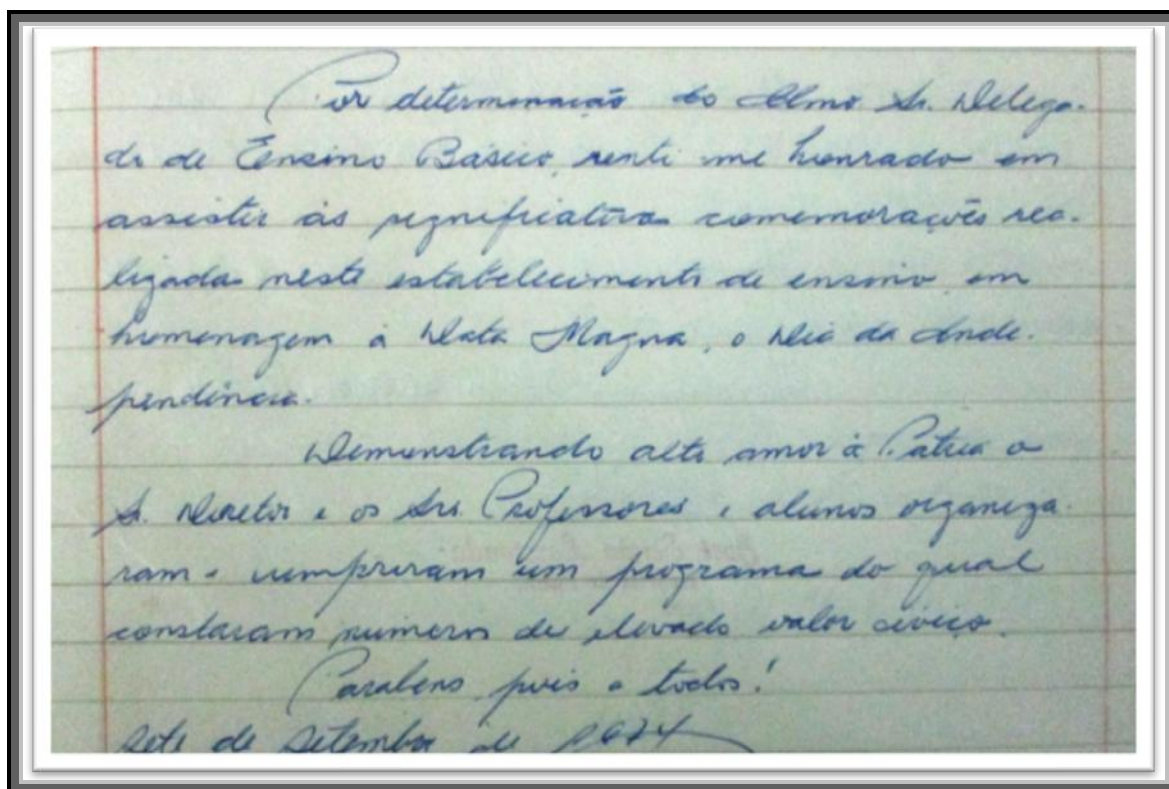 Por determinação do Ilmo Sr. Delega-
do de Ensino Básico, senti me honrado em
assistir às significativas comemorações rea-
lizadas neste estabelecimento de ensino em
homenagem à Data Magna, o Dia da Inde-
pendência.
Demonstrando alto amor à Pátria o
Sr. Diretor e os Srs. Professores e alunos organiza-
ram e cumpriram um programa do qual
constaram números de elevado valor cívico.
Parabens pois a todos!
Sete de Setembro de 1974